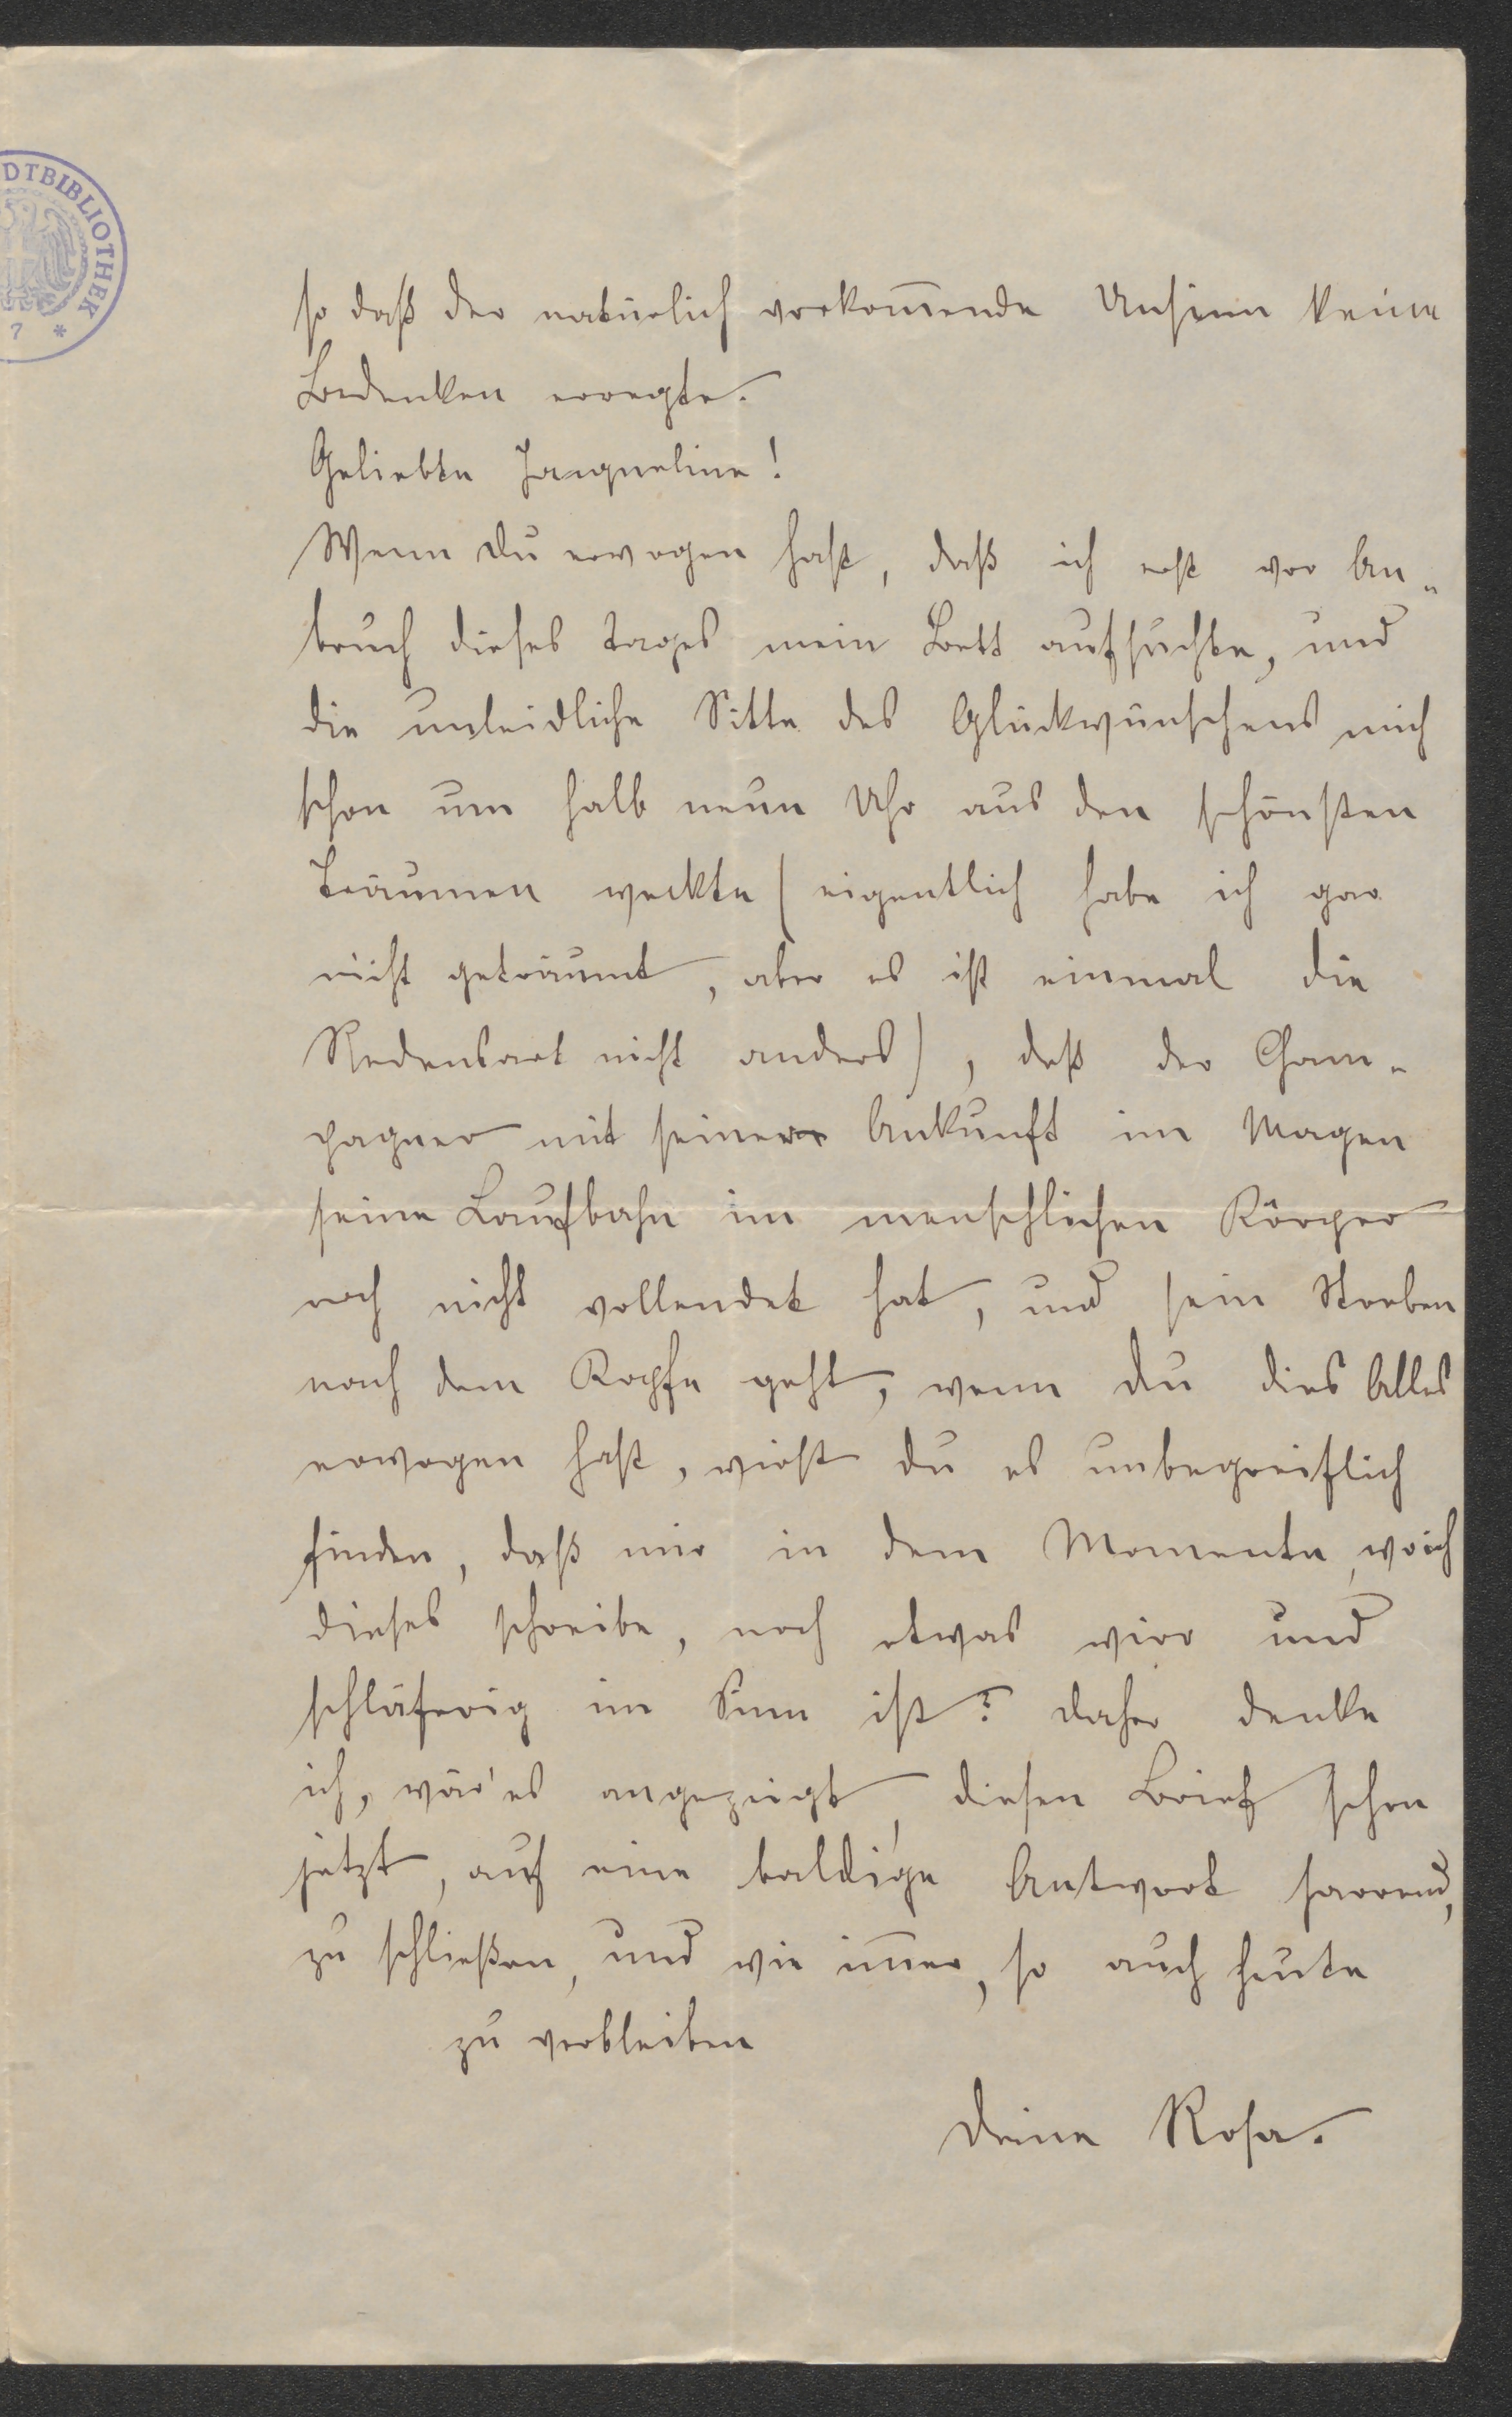 DTBIBLIOTHEK
7 *
so daß der natürlich vorkom̅ende Unsinn keine
Bedenken erregte.
Geliebte Jacqueline!
Wenn du erwogen hast, daß ich erst vor An-
bruch dieses Tages mein Bett aufsuchte, und
die unleidliche Sitte des Glückwünschens mich
schon um halb neun Uhr aus den schönsten
Träumen weckte (eigentlich habe ich gar
nicht geträumt, aber es ist einmal die
Redensart nicht anders), daß der Cham-
pagner mit seiner Ankunft im Magen
seine Laufbahn im menschlichen Körper
noch nicht vollendet hat, und sein Streben
nach dem Kopfe geht, wenn du dies Alles
erwogen hast, wirst du es unbegreiflich
finden, daß mir in dem Momente, wo ich
dieses schreibe, noch etwas wirr und
schläfrig im Sinn ist? daher denke
ich, wär' es angezeigt, diesen Brief schon
jetzt, auf eine baldige Antwort harrend,
zu schließen, und wie im̅er, so auch heute
zu verbleiben
deine Rosa.